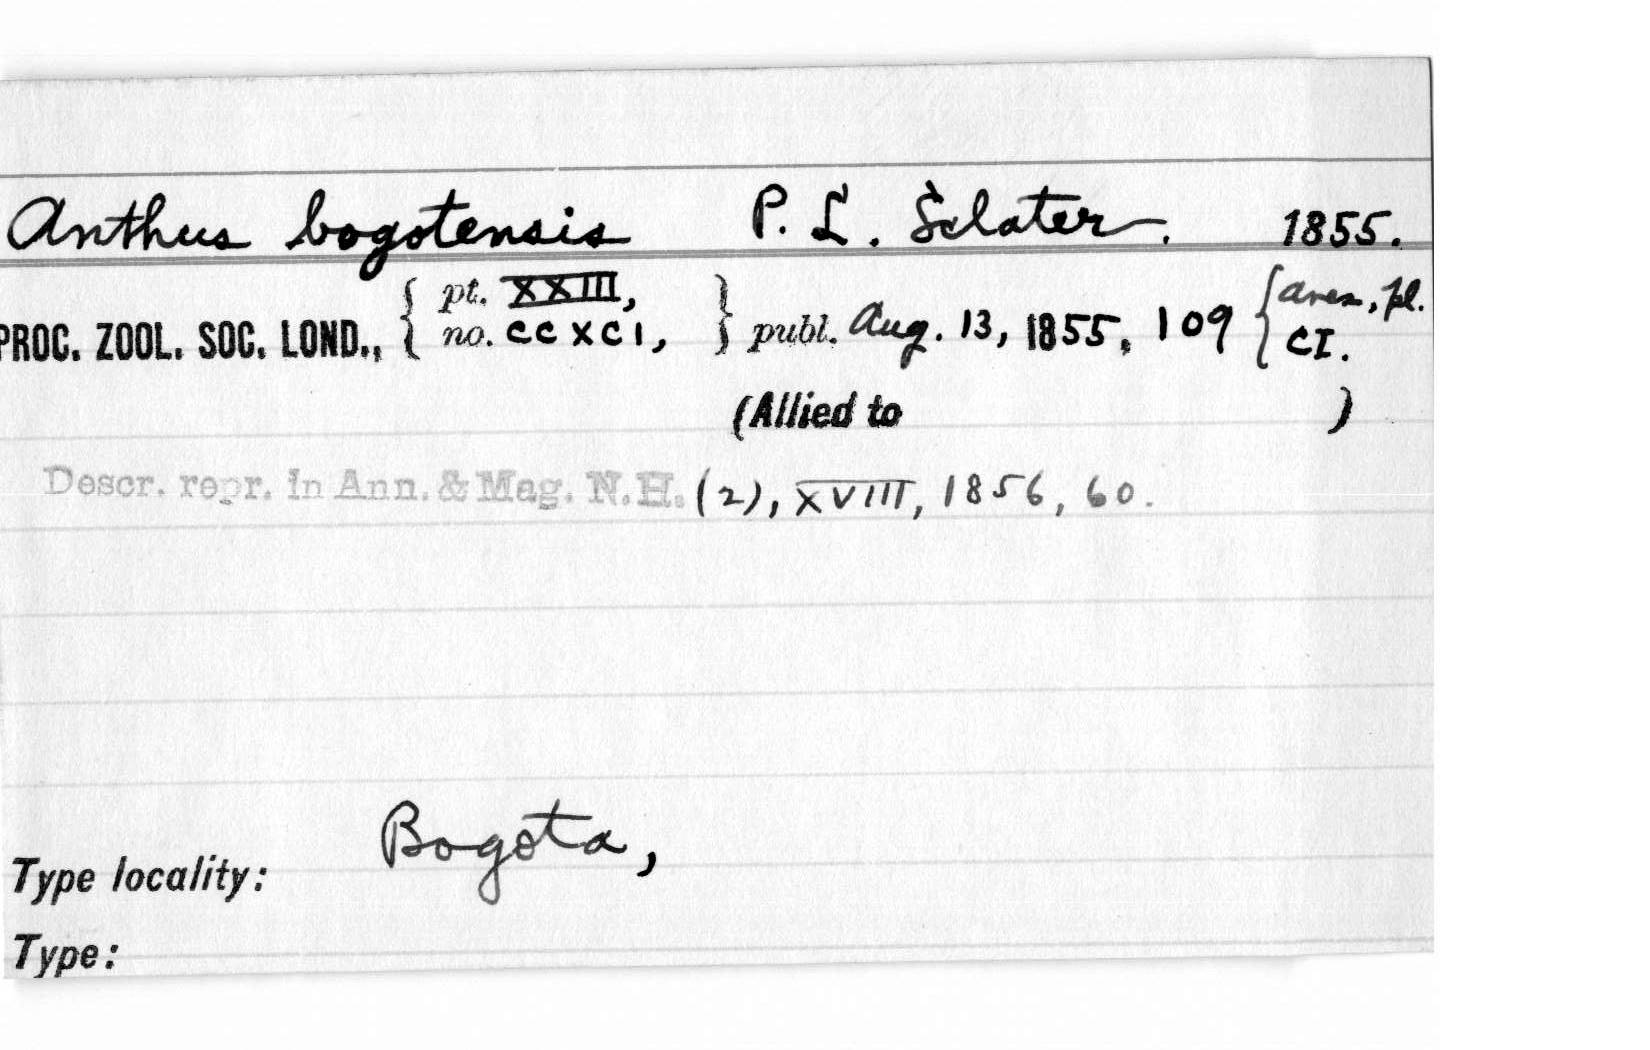 Anthus bogotensis P. L. Sclater. 1855.
PROC. ZOOL. SOC. LOND., { pt. XXIII, no. CCXCI, } publ. Aug. 13, 1855, 109 { aves, pl. CI.
(Allied to )
Descr. repr. in Ann. & Mag. N.H. (2), XVIII, 1856, 60.
Bogota,
Type locality:
Type: